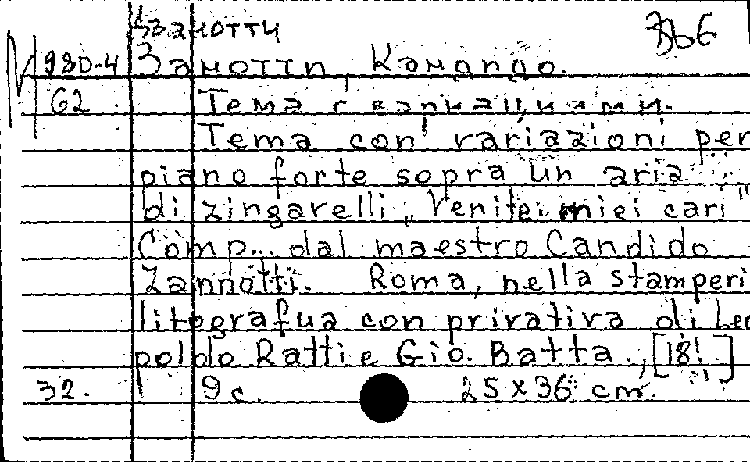 Занотти
М 980-4 Занотти, Кандидо.
62 Тема с вариациями.
Tema con variazioni per
piano forte sopra un aria
di Zingarelli „Venite miei cari"
Comp. dal maestro Candido
Zannotti. Roma, nella stamperi
litografua con privativa di Leo
poldo Ratti e Gio. Batta., [18! ]
32. 9 с. 25 x 36 cm.